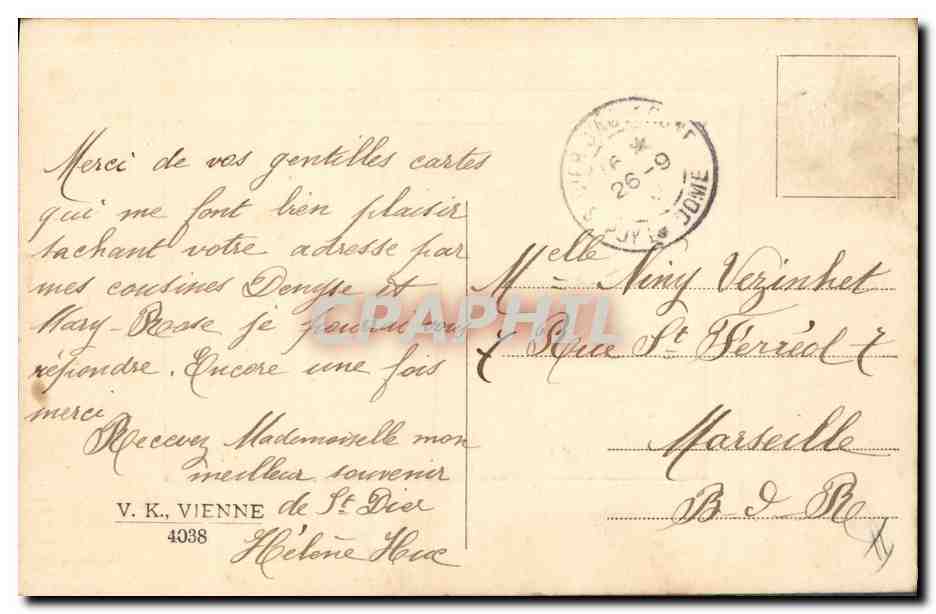 Merci de vos gentilles cartes
qui me font bien plaisir
sachant votre adresse par
mes cousines Denyse et
Mary-Rose je pourrai vous
répondre. Encore une fois
merci
Recevez Mademoiselle mon
meilleur souvenir
de St Dier
Hélène
V. K., VIENNE
4038
16 *
26-9
PUY DE DOME
Melle Niny Vezinhet
7 Rue St Ferréol 7
Marseille
B d R
CPAPHIL